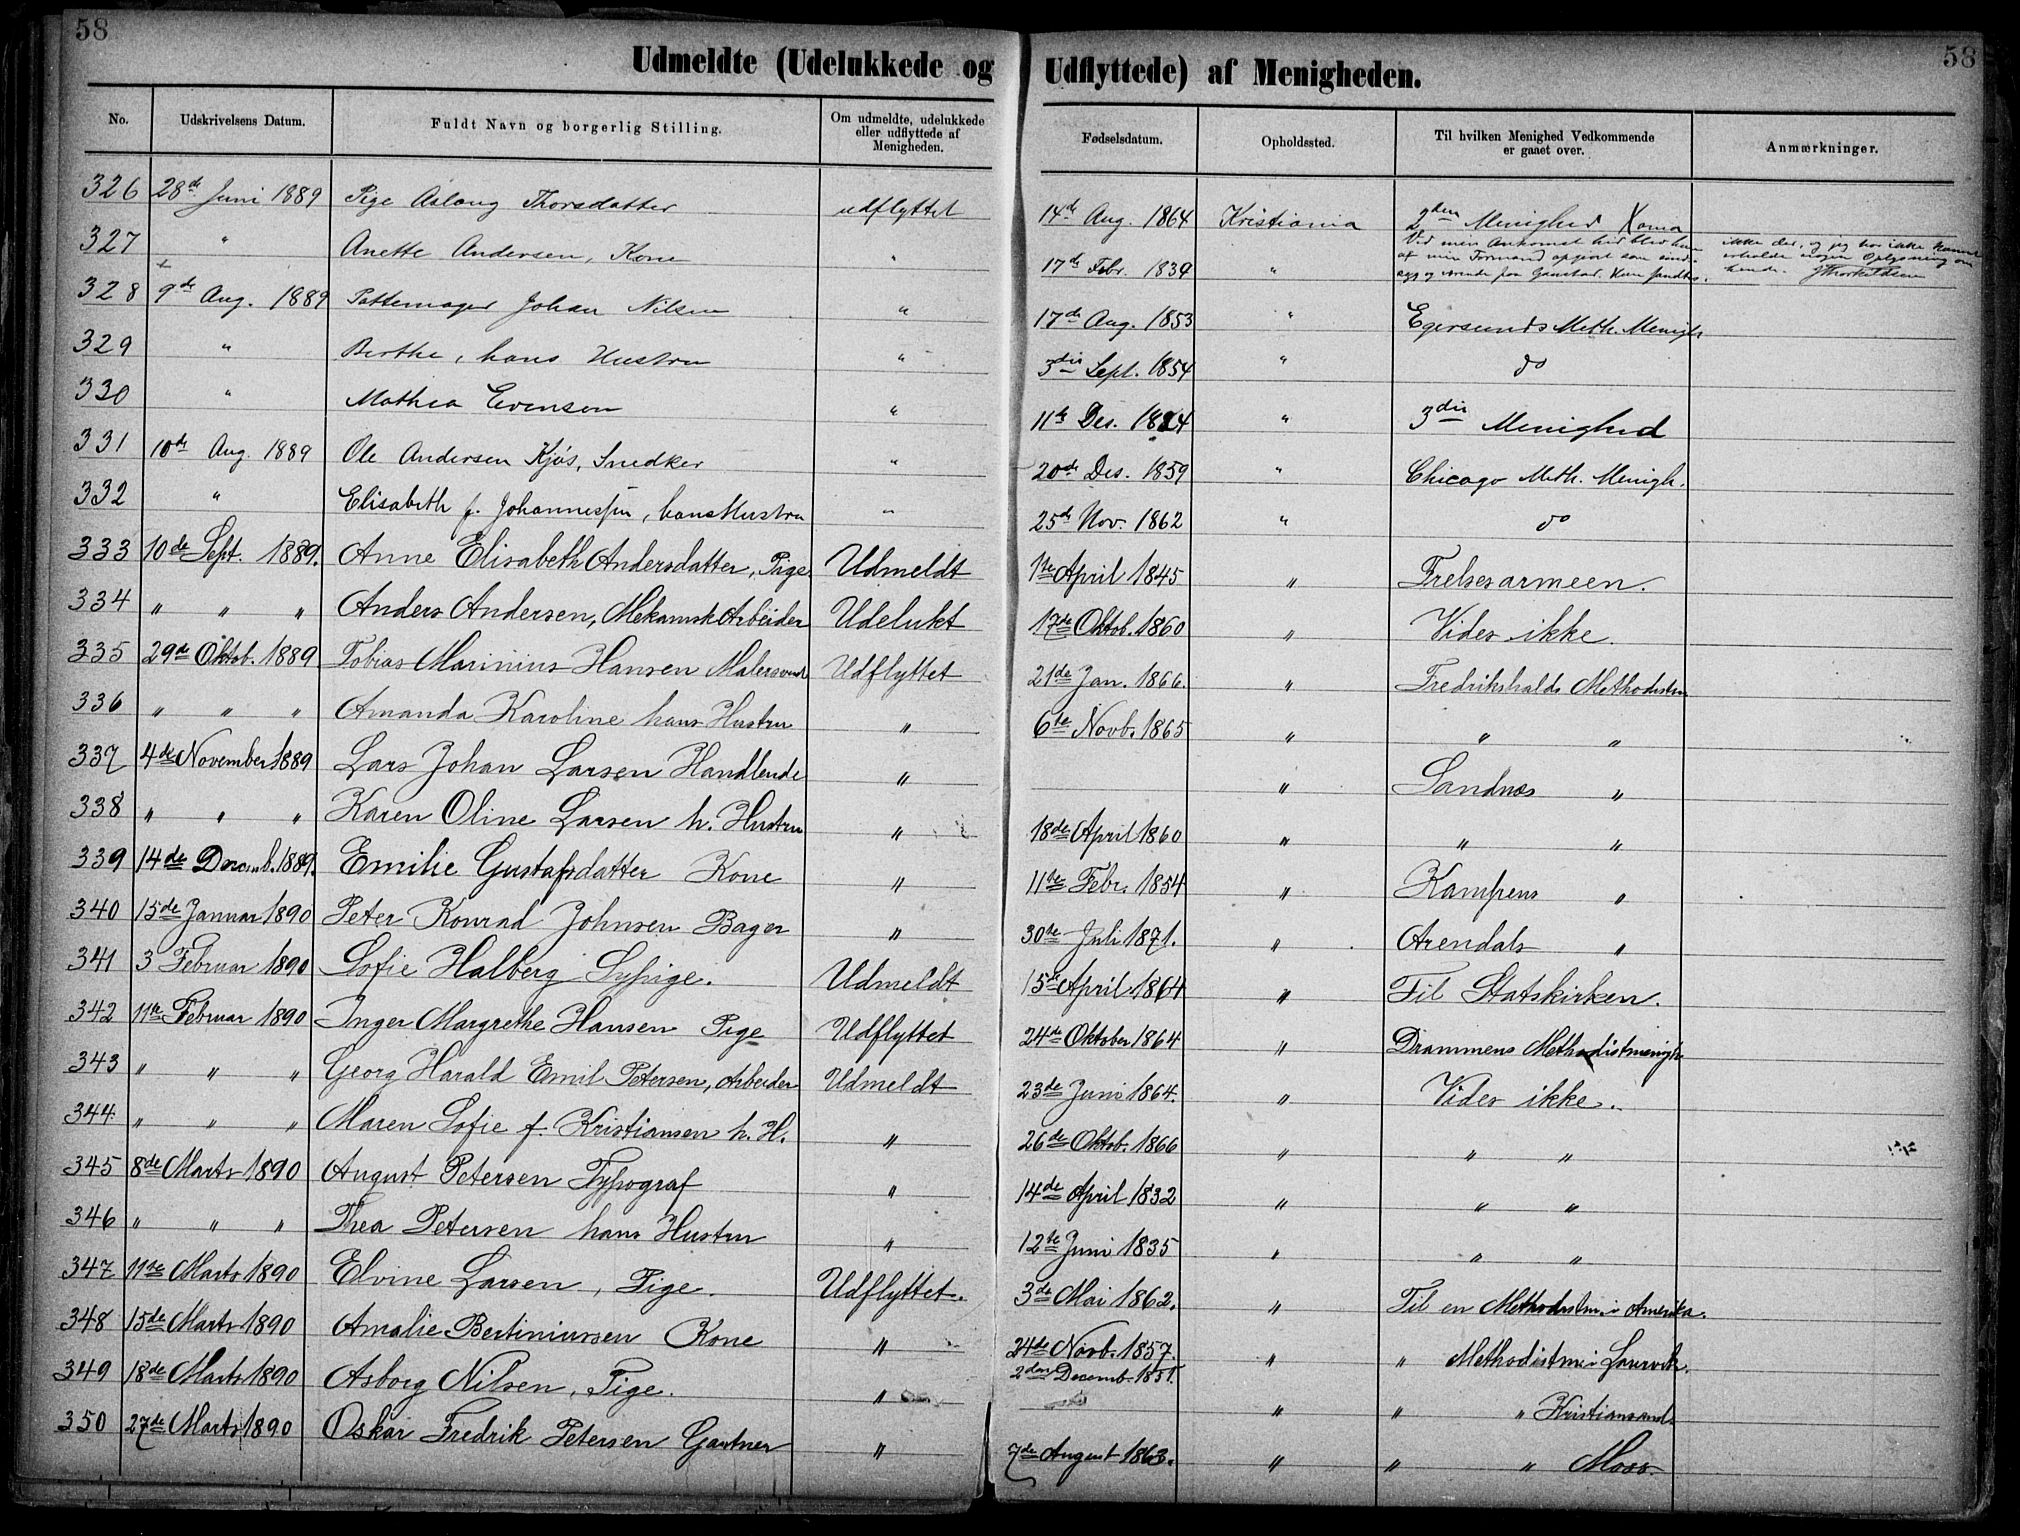 58
58
Udmeldte (Udelukkede og Udflyttede) af Menigheden.
No. Udskrivelsens Datum. Fuldt Navn og borgerlig Stilling. Om udmeldte, udelukkede eller udflyttede af Menigheden. Fødselsdatum. Opholdssted. Til hvilken Menighed Vedkommende er gaaet over. Anmærkninger.
326 28de Juni 1889 Pige Aslaug Thorsdatter udflyttet 14de Aug. 1864 Kristiania 2den Menighed
327 " Anette Andersen, Kone " 17de Febr. 1839 " Ved min Ankomst hid blev hun
af min Formand opgivet som
ikke der, og jeg har ikke kunnet
erholde nogen Oplysning om
hende.
328 9de Aug. 1889 Pottemager Johan Nilsen " 17de Aug. 1853 " Egersunds Meth. Menigh.
329 " Berthe, hans Hustru " 3die Sept. 1854 " do
330 " Mathea Evensen " 11te Des. 1824 " 3die Menighed
331 10de Aug. 1889 Ole Andersen Kjøs, Snedker " 20de Des. 1859 " Chicago Meth. Menigh.
332 " Elisabeth f. Johannesen, hans Hustru " 25de Nov. 1862 " do
333 10de Sept. 1889. Anne Elisabeth Andersdatter, Pige Udmeldt 1te April 1845 " Frelsesarmeen.
334 " " " Anders Andersen, Mekanisk Arbeider Udelukt 17de Oktob. 1860 " Vides ikke.
335 29de Oktob. 1889 Tobias Marinius Hansen Malersvend Udflyttet 21de Jan. 1866. " Fredrikshalds Methodistm
336 " " " Amanda Karoline hans Hustru " 6te Novb. 1865 " " "
337 4de November 1889 Lars Johan Larsen Handlende " " Sandnes "
338 " " " Karen Oline Larsen h. Hustru " 18de April 1860 " " "
339 14de Decemb. 1889. Emilie Gustafsdatter Kone " 11te Febr. 1854 " Kampens "
340 15de Januar 1890 Peter Konrad Johnsen Bager " 30te Juli 1871. " Arendals "
341 3 Februar 1890 Sofie Halberg Sypige. Udmeldt 15de April 1864 " Til Statskirken.
342 11te Februar 1890 Inger Margrethe Hansen Pige Udflyttet 24de Oktober 1864 " Drammens Methodistmenigh
343 " " " Georg Harald Emil Petersen, Arbeider Udmeldt 23de Juni 1864. " Vides ikke.
344 " " " Maren Sofie f. Kristiansen h. H. " 26de Oktob. 1866 " " "
345 8de Marts 1890 August Petersen Typograf " 14de April 1832 " " "
346 " " " Thea Petersen hans Hustru " 12te Juni 1835 " " "
347 11te Marts 1890 Elvine Larsen, Pige. Udflyttet. 3de Mai 1862. " Til en Methodistm. i Amerika.
348 15de Marts 1890 Amalie Bertiniussen Kone " 24de Novb. 1857. " " Methodistm i Laurvik.
349 18de Marts 1890 Asborg Nilsen, Pige. " 2den Decemb. 1851. " " " Kristiansand.
350 27de Marts 1890 Oskar Fredrik Petersen Gartner " 7de August 1863. " " " Moss.